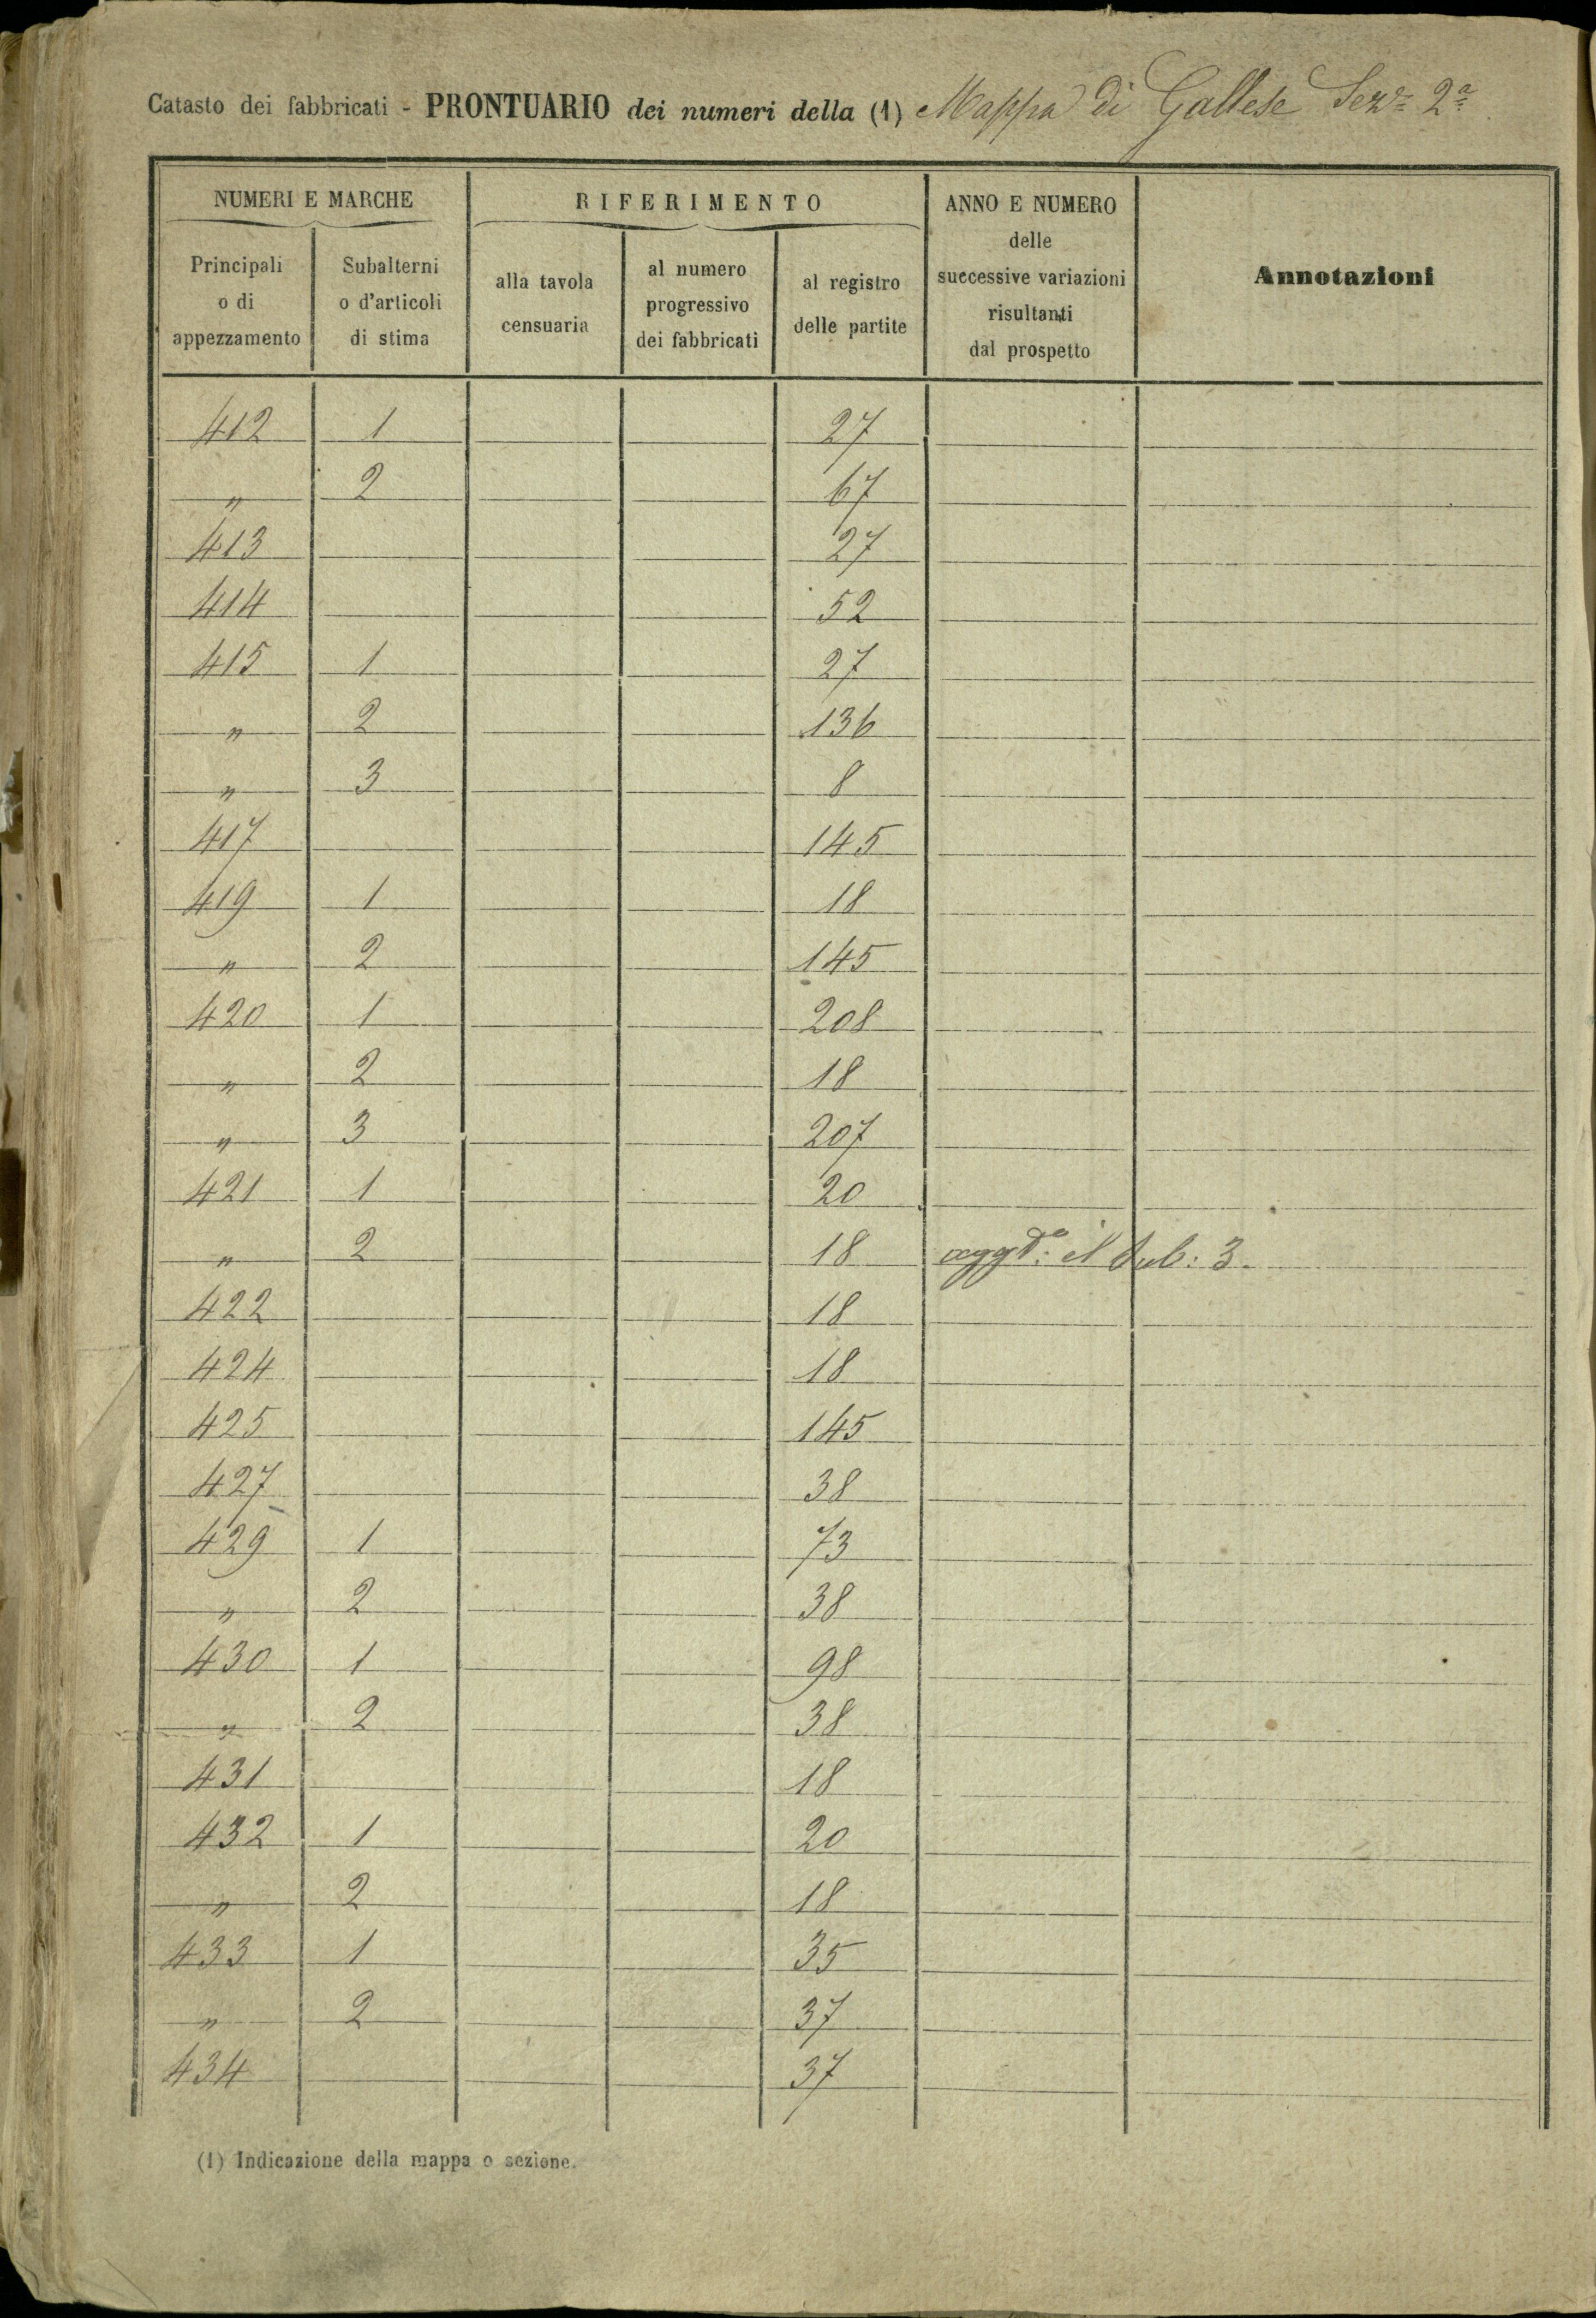 Catasto dei fabbricati - PRONTUARIO dei numeri della (1) Mappa di Gallese Sez.e 2a
NUMERI E MARCHE
RIFERIMENTO
ANNO E NUMERO delle successive variazioni risultanti dal prospetto
Annotazioni
Principali o di appezzamento
Subalterni o d'articoli di stima
alla tavola censuaria
al numero progressivo dei fabbricati
al registro delle partite
412 1 27
" 2 67
413 27
414 52
415 1 27
" 2 136
" 3 8
417 145
419 1 18
" 2 145
420 1 208
" 2 18
" 3 207
421 1 20
" 2 18 aggto: il Sub: 3.
422 18
424 18
425 145
427 38
429 1 73
" 2 38
430 1 98
" 2 38
431 18
432 1 20
" 2 18
433 1 35
" 2 37
434 37
(1) Indicazione della mappa o sezione.